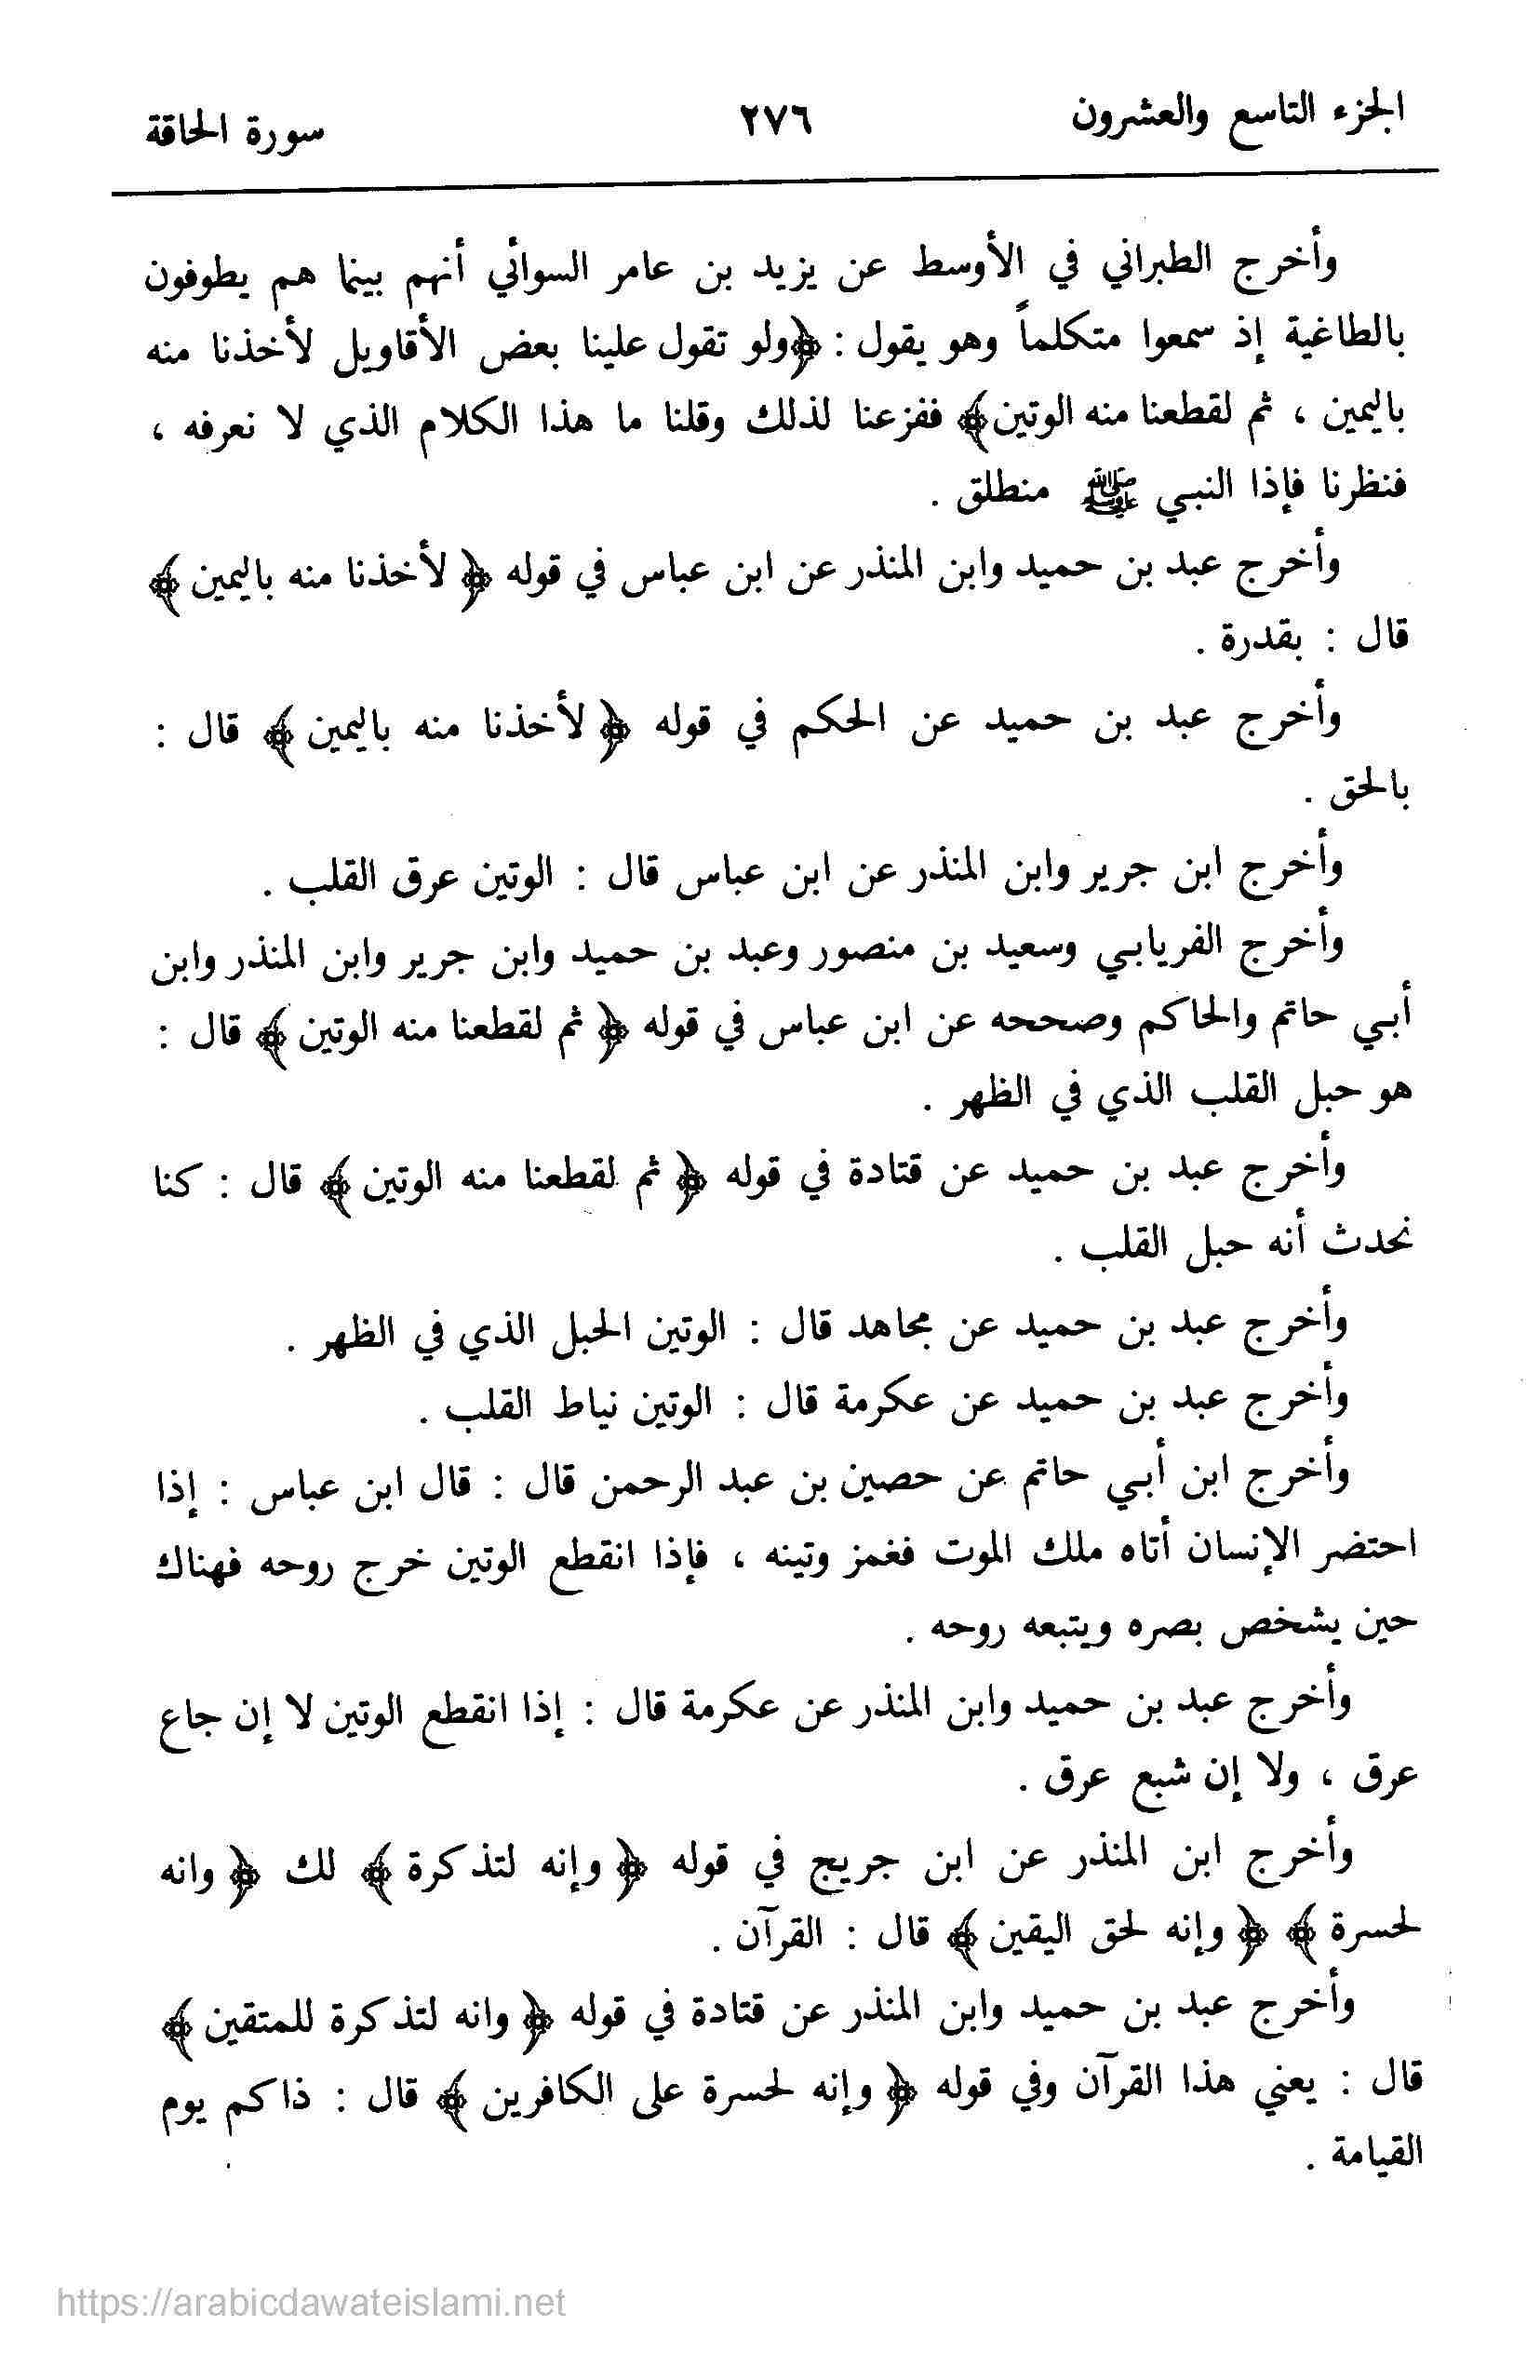 الجزء التاسع والعشرون ٢٧٦ سورة الحاقة
وأخرج الطبراني في الأوسط عن يزيد بن عامر السوائي أنهم بينما هم يطوفون
بالطاغية إذ سمعوا متكلماً وهو يقول : ﴿ولو تقول علينا بعض الأقاويل لأخذنا منه
باليمين ، ثم لقطعنا منه الوتين﴾ ففزعنا لذلك وقلنا ما هذا الكلام الذي لا نعرفه ،
فنظرنا فإذا النبي ﷺ منطلق .
وأخرج عبد بن حميد وابن المنذر عن ابن عباس في قوله ﴿ لأخذنا منه باليمين ﴾
قال : بقدرة .
وأخرج عبد بن حميد عن الحكم في قوله ﴿ لأخذنا منه باليمين ﴾ قال :
بالحق .
وأخرج ابن جرير وابن المنذر عن ابن عباس قال : الوتين عرق القلب .
وأخرج الفريابي وسعيد بن منصور وعبد بن حميد وابن جرير وابن المنذر وابن
أبي حاتم والحاكم وصححه عن ابن عباس في قوله ﴿ ثم لقطعنا منه الوتين ﴾ قال :
هو حبل القلب الذي في الظهر .
وأخرج عبد بن حميد عن قتادة في قوله ﴿ ثم لقطعنا منه الوتين ﴾ قال : كنا
نحدث أنه حبل القلب .
وأخرج عبد بن حميد عن مجاهد قال : الوتين الحبل الذي في الظهر .
وأخرج عبد بن حميد عن عكرمة قال : الوتين نياط القلب .
وأخرج ابن أبي حاتم عن حصين بن عبد الرحمن قال : قال ابن عباس : إذا
احتضر الإنسان أتاه ملك الموت فغمز وتينه ، فإذا انقطع الوتين خرج روحه فهناك
حين يشخص بصره ويتبعه روحه .
وأخرج عبد بن حميد وابن المنذر عن عكرمة قال : إذا انقطع الوتين لا إن جاع
عرق ، ولا إن شبع عرق .
وأخرج ابن المنذر عن ابن جريج في قوله ﴿ وإنه لتذكرة ﴾ لك ﴿ وانه
لحسرة ﴾ ﴿ وإنه لحق اليقين ﴾ قال : القرآن .
وأخرج عبد بن حميد وابن المنذر عن قتادة في قوله ﴿ وانه لتذكرة للمتقين ﴾
قال : يعني هذا القرآن وفي قوله ﴿ وإنه لحسرة على الكافرين ﴾ قال : ذاكم يوم
القيامة .
https://arabicdawateislami.net